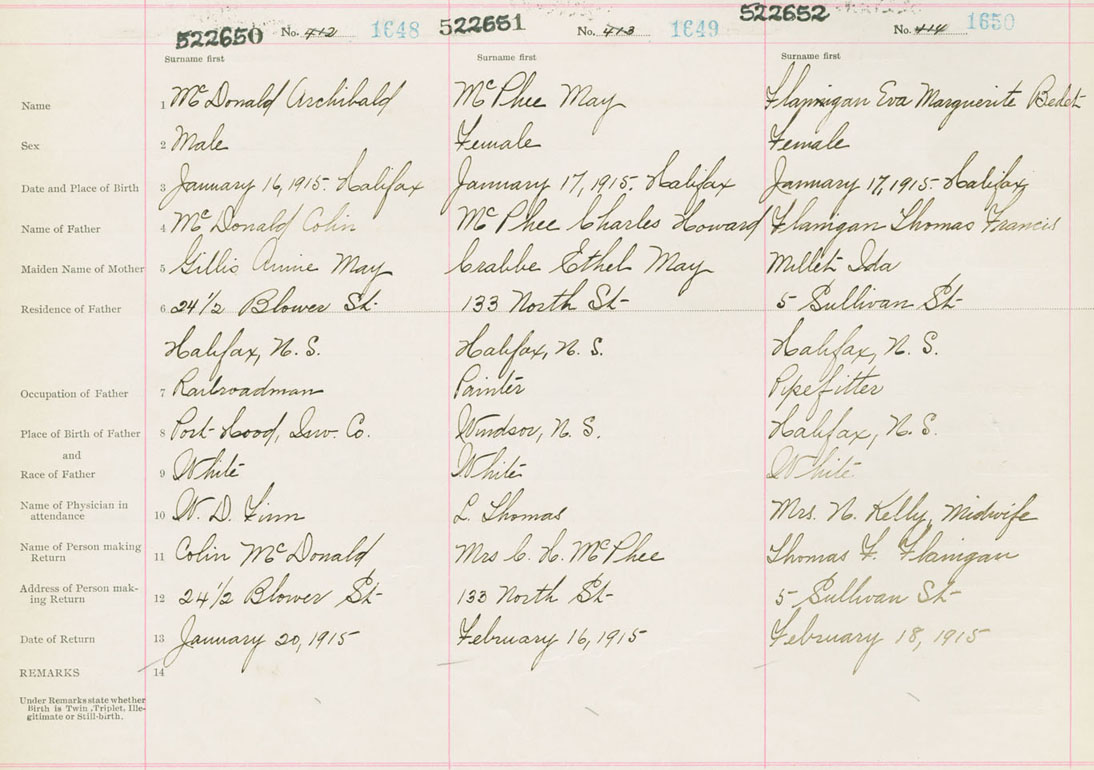 522650 No. 412 1648 522651 No. 413 1649 522652 No. 414 1650
Surname first Surname first Surname first
Name 1 McDonald Archibald McPhee May Flannigan Eva Marguerite
Sex 2 Male Female Female
Date and Place of Birth 3 January 16, 1915. Halifax January 17, 1915. Halifax January 17, 1915. Halifax
Name of Father 4 McDonald Colin McPhee Charles Howard Flanigan Thomas Francis
Maiden Name of Mother 5 Gillis Annie May Crabbe Ethel May Millet Ida
Residence of Father 6 24 1/2 Blower St. 133 North St 5 Sullivan St
Halifax, N. S. Halifax, N. S. Halifax, N. S.
Occupation of Father 7 Railroadman Painter Pipefitter
Place of Birth of Father 8 Port Hood, Inv. Co. Windsor, N. S. Halifax, N. S.
and
Race of Father 9 White White White
Name of Physician in
attendance 10 W. D. Finn L. Thomas Mrs. N. Kelly, Midwife
Name of Person making
Return 11 Colin McDonald Mrs C. H. McPhee Thomas F. Flanigan
Address of Person mak-
ing Return 12 24 1/2 Blower St 133 North St 5 Sullivan St
Date of Return 13 January 20, 1915 February 16, 1915 February 18, 1915
REMARKS 14
Under Remarks state whether
Birth is Twin, Triplet, Ille-
gitimate or Still-birth.